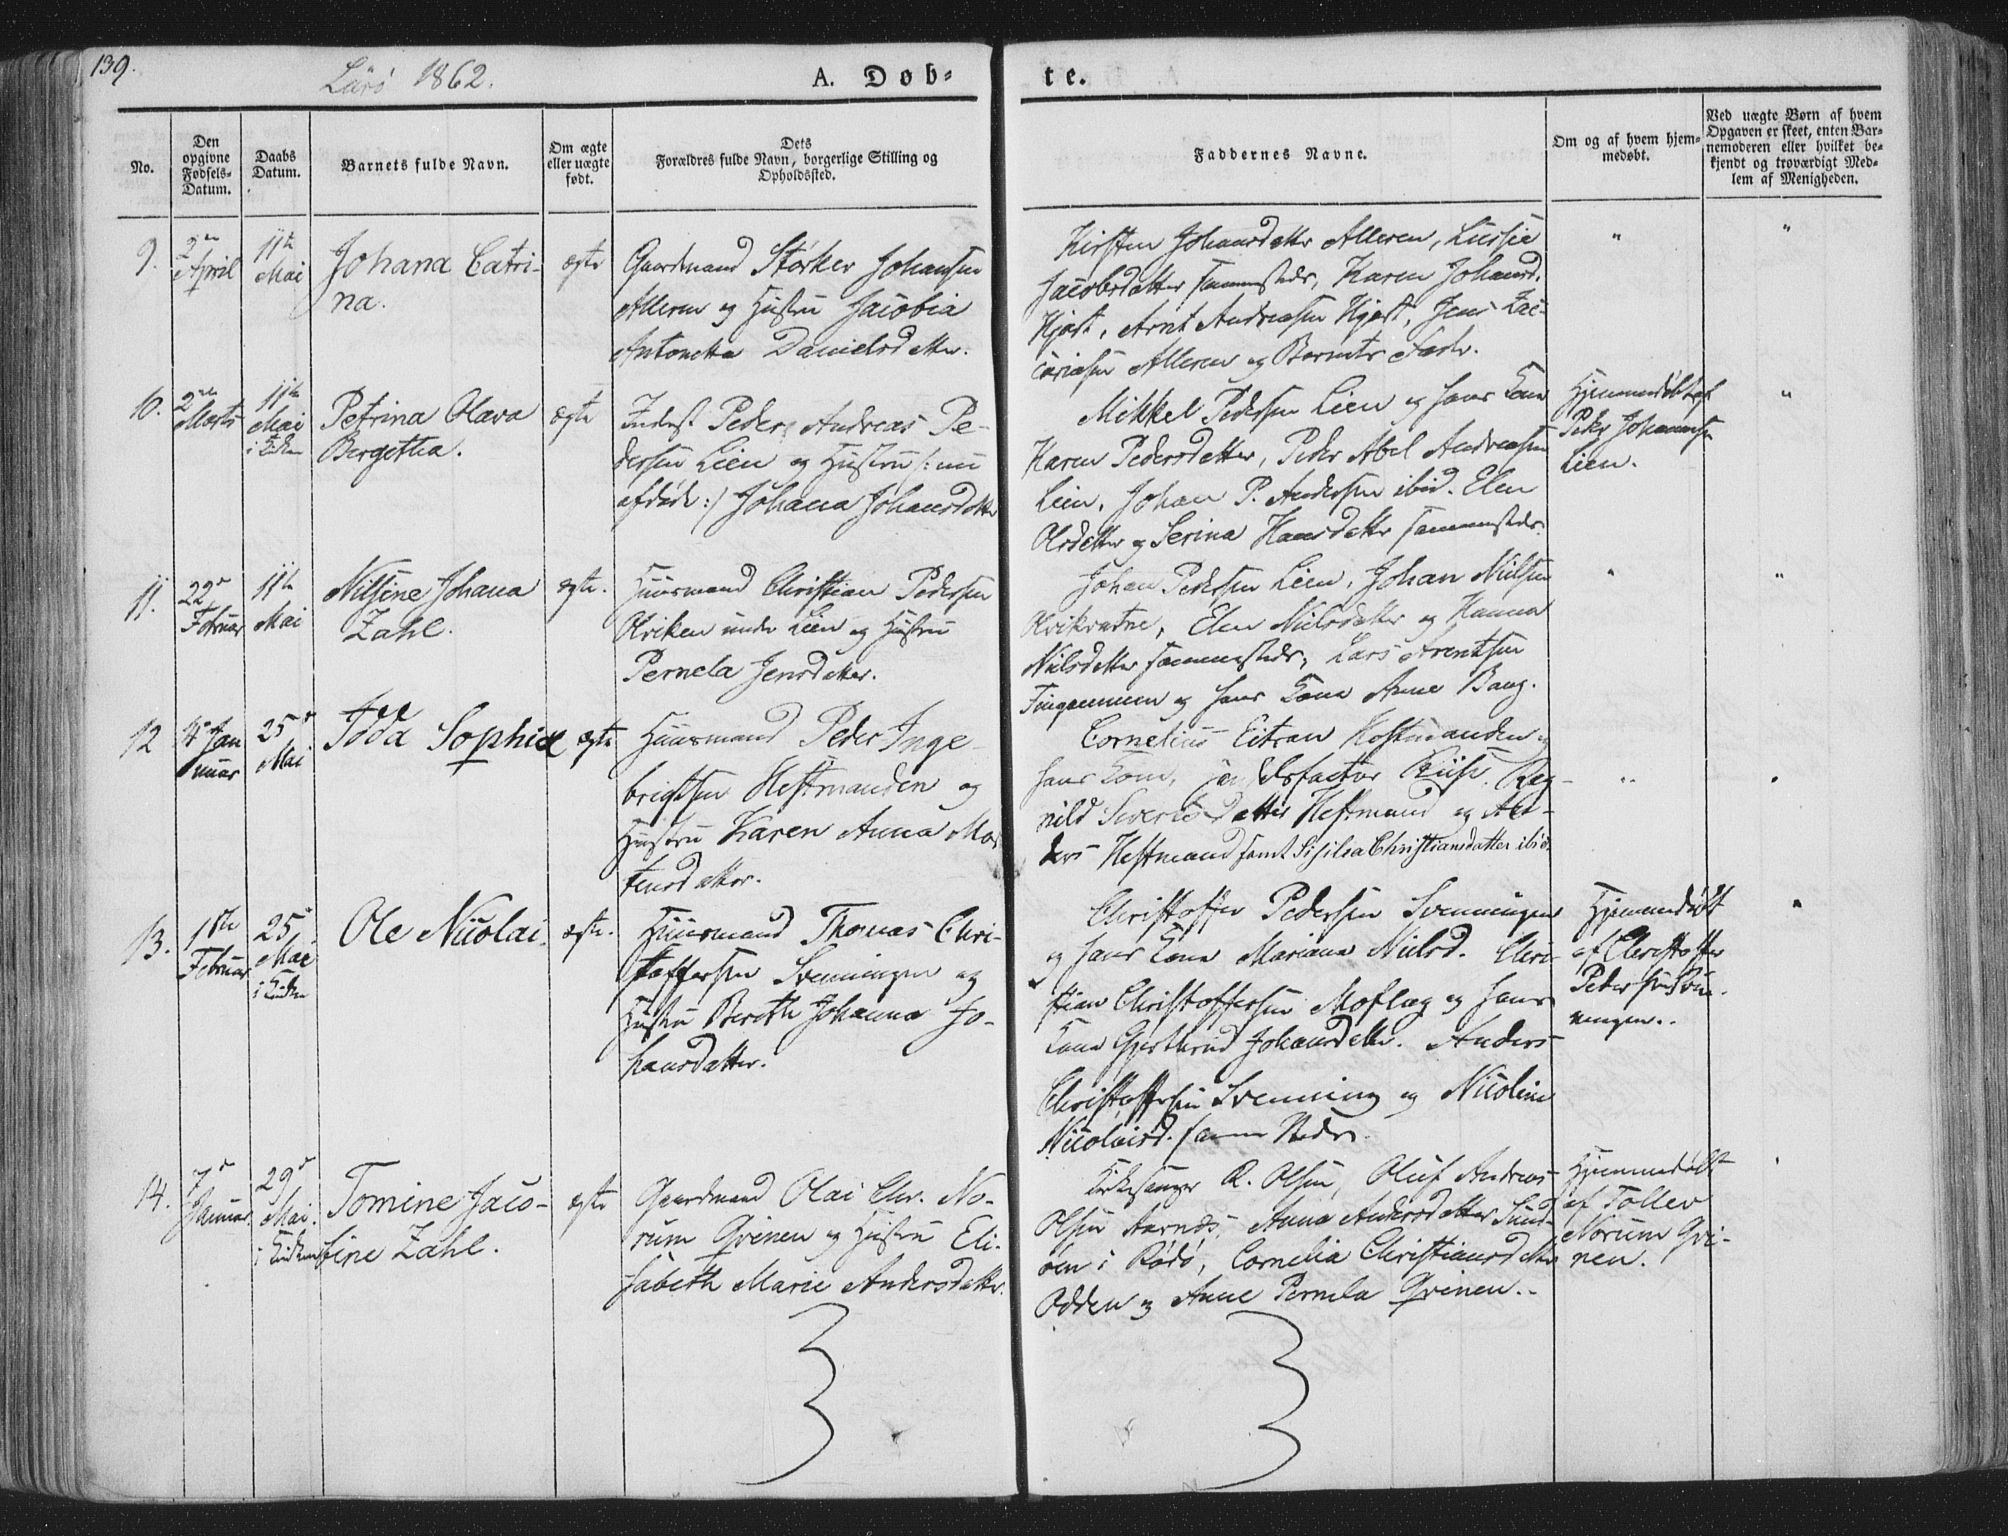 139.
Lurö 1862.
A. Døb-
te.
No.
Den opgivne Fødsels-Datum.
Daabs Datum.
Barnets fulde Navn.
Om ægte eller uægte født.
Dets Forældres fulde Navn, borgerlige Stilling og Opholdssted.
Faddernes Navne.
Om og af hvem hjem-medøbt.
Ved uægte Børn af hvem Opgaven er skeet, enten Bar-nemoderen eller hvilket be-kjendt og troværdigt Med-lem af Menigheden.
9.
2den April
11te Mai
Johana Catri-
na.
ægte
Gaardmand Størker Johansen
Alleren og Hustru Jacobia
Antonetta Danielsdatter.
Kirsten Johansdatter Alleren, Lussie
Jacobsdatter sammesteds, Karen Johansd.
Hjort, Arnt Andreasen Hjort, Jens Zac-
cariasen Alleren og Barnets Fader.
"
"
10.
2den Marts
11te Mai i Kirken
Petrina Olava
Bergetha.
ægte
Inderst Peder Andreas Pe-
dersen Lien og Hustru /: nu
afdøde :/ Johana Johansdatter
Mikkel Pedersen Lien og hans Kone
Karen Pedersdatter, Peder Abel Andreasen
Lien, Johan P. Andersen ibid. Elen
Olsdatter og Serina Hansdatter sammesteds.
Hjemmedøbt af
Peder Johannesen
Lien.
"
11.
22d Februar
11te Mai
Nilsine Johana
Zahl.
ægte.
Huusmand Christian Pedersen
Olviken under Lien og Hustru
Pernela Jensdatter.
Johan Pedersen Lien, Johan Nielsen
Olvikvatne, Elen Nielsdatter og Hanna
Nielsdatter sammesteds, Lars Arentsen
og hans Kone Anne Bang.
"
"
12
4d Januar
25d Mai
Todd Sophie
ægte
Huusmand Peder Inge-
brigtsen Hestmanden og
Hustru Karen Anna Mor-
tensdatter.
Cornelius Eitran Hestmanden og
hans Kone, Riise. Reg-
nild Siverts Datter Hestmand og An-
ders Hestmand samt Sisilia Christiansdatter ibid.
"
"
13.
1ste Februar
25d Mai i Kirken
Ole Nicolai.
ægte.
Huusmand Thomas Chri-
stoffersen Svenningen og
Hustru Bereth Johanna Jo-
hansdatter.
Christoffer Pedersen Svenningen
og hans Kone Mariana Nielsd. Chri-
stian Christoffersen Moflag og hans
Kone Gjertrud Johansdatter. Anders
Christoffersen Svenning og Nicoline
Nicolaisd. samme Steds.
Hjemmedøbt
af Christoffer
Pedersen Sven-
ningen.
"
14.
7d Januar
29d Mai. i Kirken
Tomine Jaco-
bine Zahl.
ægte
Gaardmand Olai Chr. No-
rum Qvinen og Hustru Eli-
sabeth Marie Andersdatter.
Kirkesanger R. Olsen, Oluf Andreas
Olsen Aarnes, Anna Andersdatter Sund-
øen i Rødø, Cornelia Christiansdatter
Odden og Anne Pernela Qvinen.
Hjemmedøbt
af Tollev
Norum Qvi-
nen.